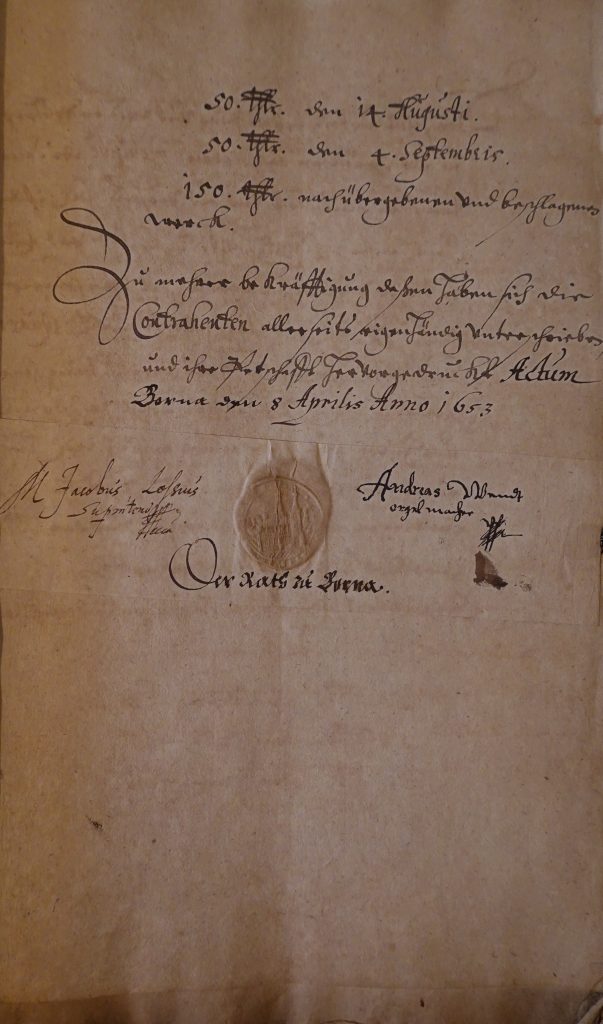 50. thlr. den 14. Augusti.
50. thlr. den 4. Septembris.
150. thlr. nach übergebenen und beschlagenen
werck.
Zu mehrer bekräfftigung deßen haben sich die
Contrahenten allerseits eigenhändig unterschrieben
und ihre Petschafft hervorgedruckt Actum
Borna den 8 Aprilis Anno 1653
M Jacobus Lossius
Supintend
Andreas Wendt
orgelmacher
Der Rath zu Borna.